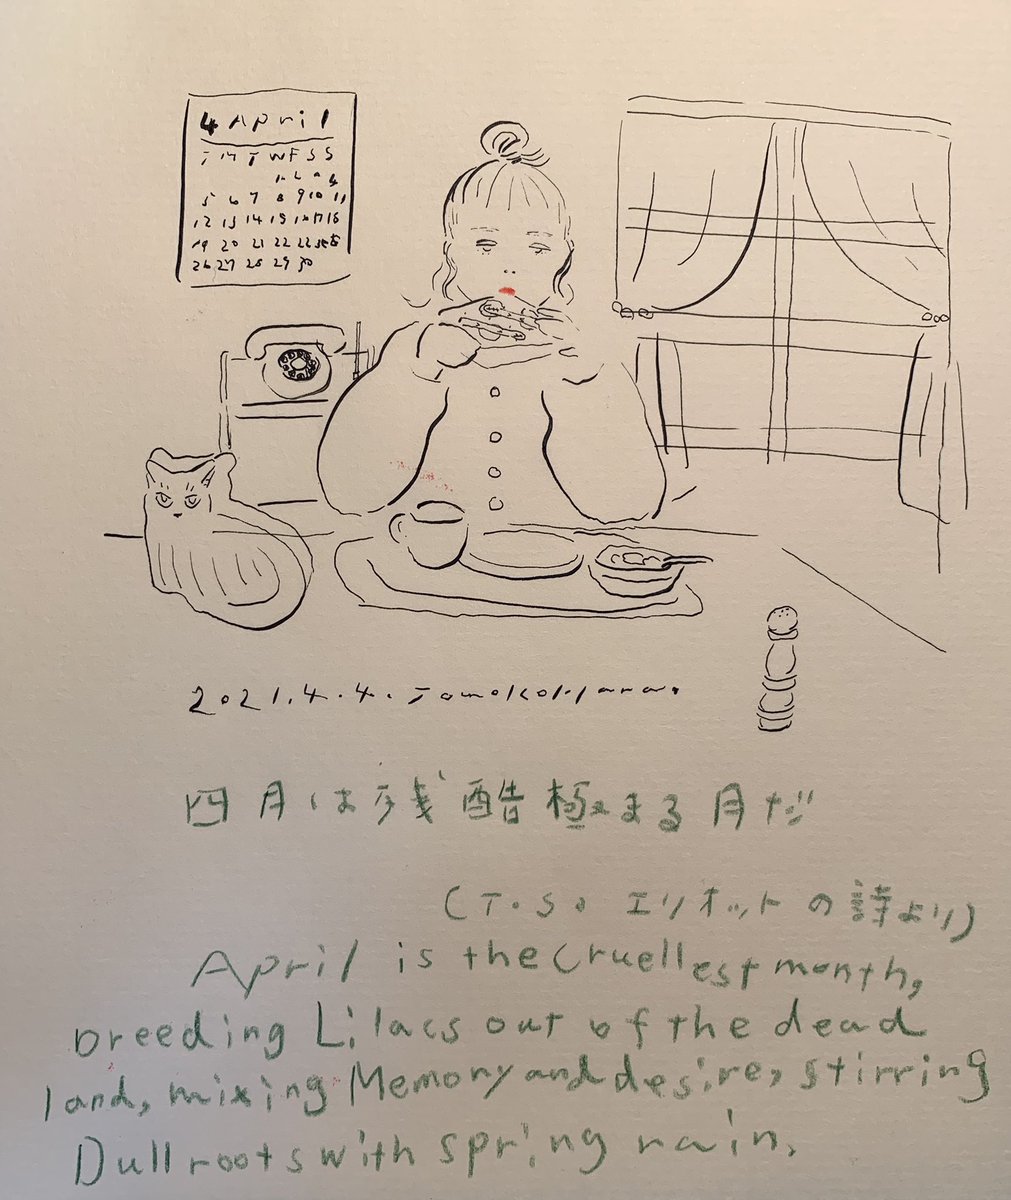 4 April
W F S S
5 6 7 8 9 10 11
12 13 14 15 16 17 18
19 20 21 22
26 27 28 29 30
2021.4.4.
四月は残酷極まる月だ
(T.S. エリオットの詩より)
April is the cruellest month,
breeding Lilacs out of the dead
land, mixing Memory and desire, stirring
Dull roots with spring rain.